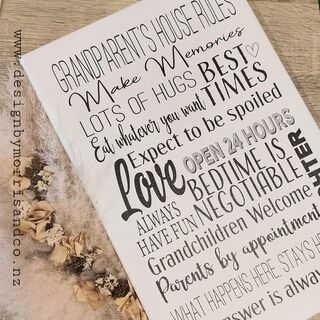 GRANDPARENT'S HOUSE RULES
Make Memories
LOTS OF HUGS
BEST TIMES
Eat whatever you want
Expect to be spoiled
Love
OPEN 24 HOURS
ALWAYS HAVE FUN
BEDTIME IS NEGOTIABLE
Grandchildren Welcome
Parents by appointment
WHAT HAPPENS HERE, STAYS
answer is always
www.designbymorrisandco.nz